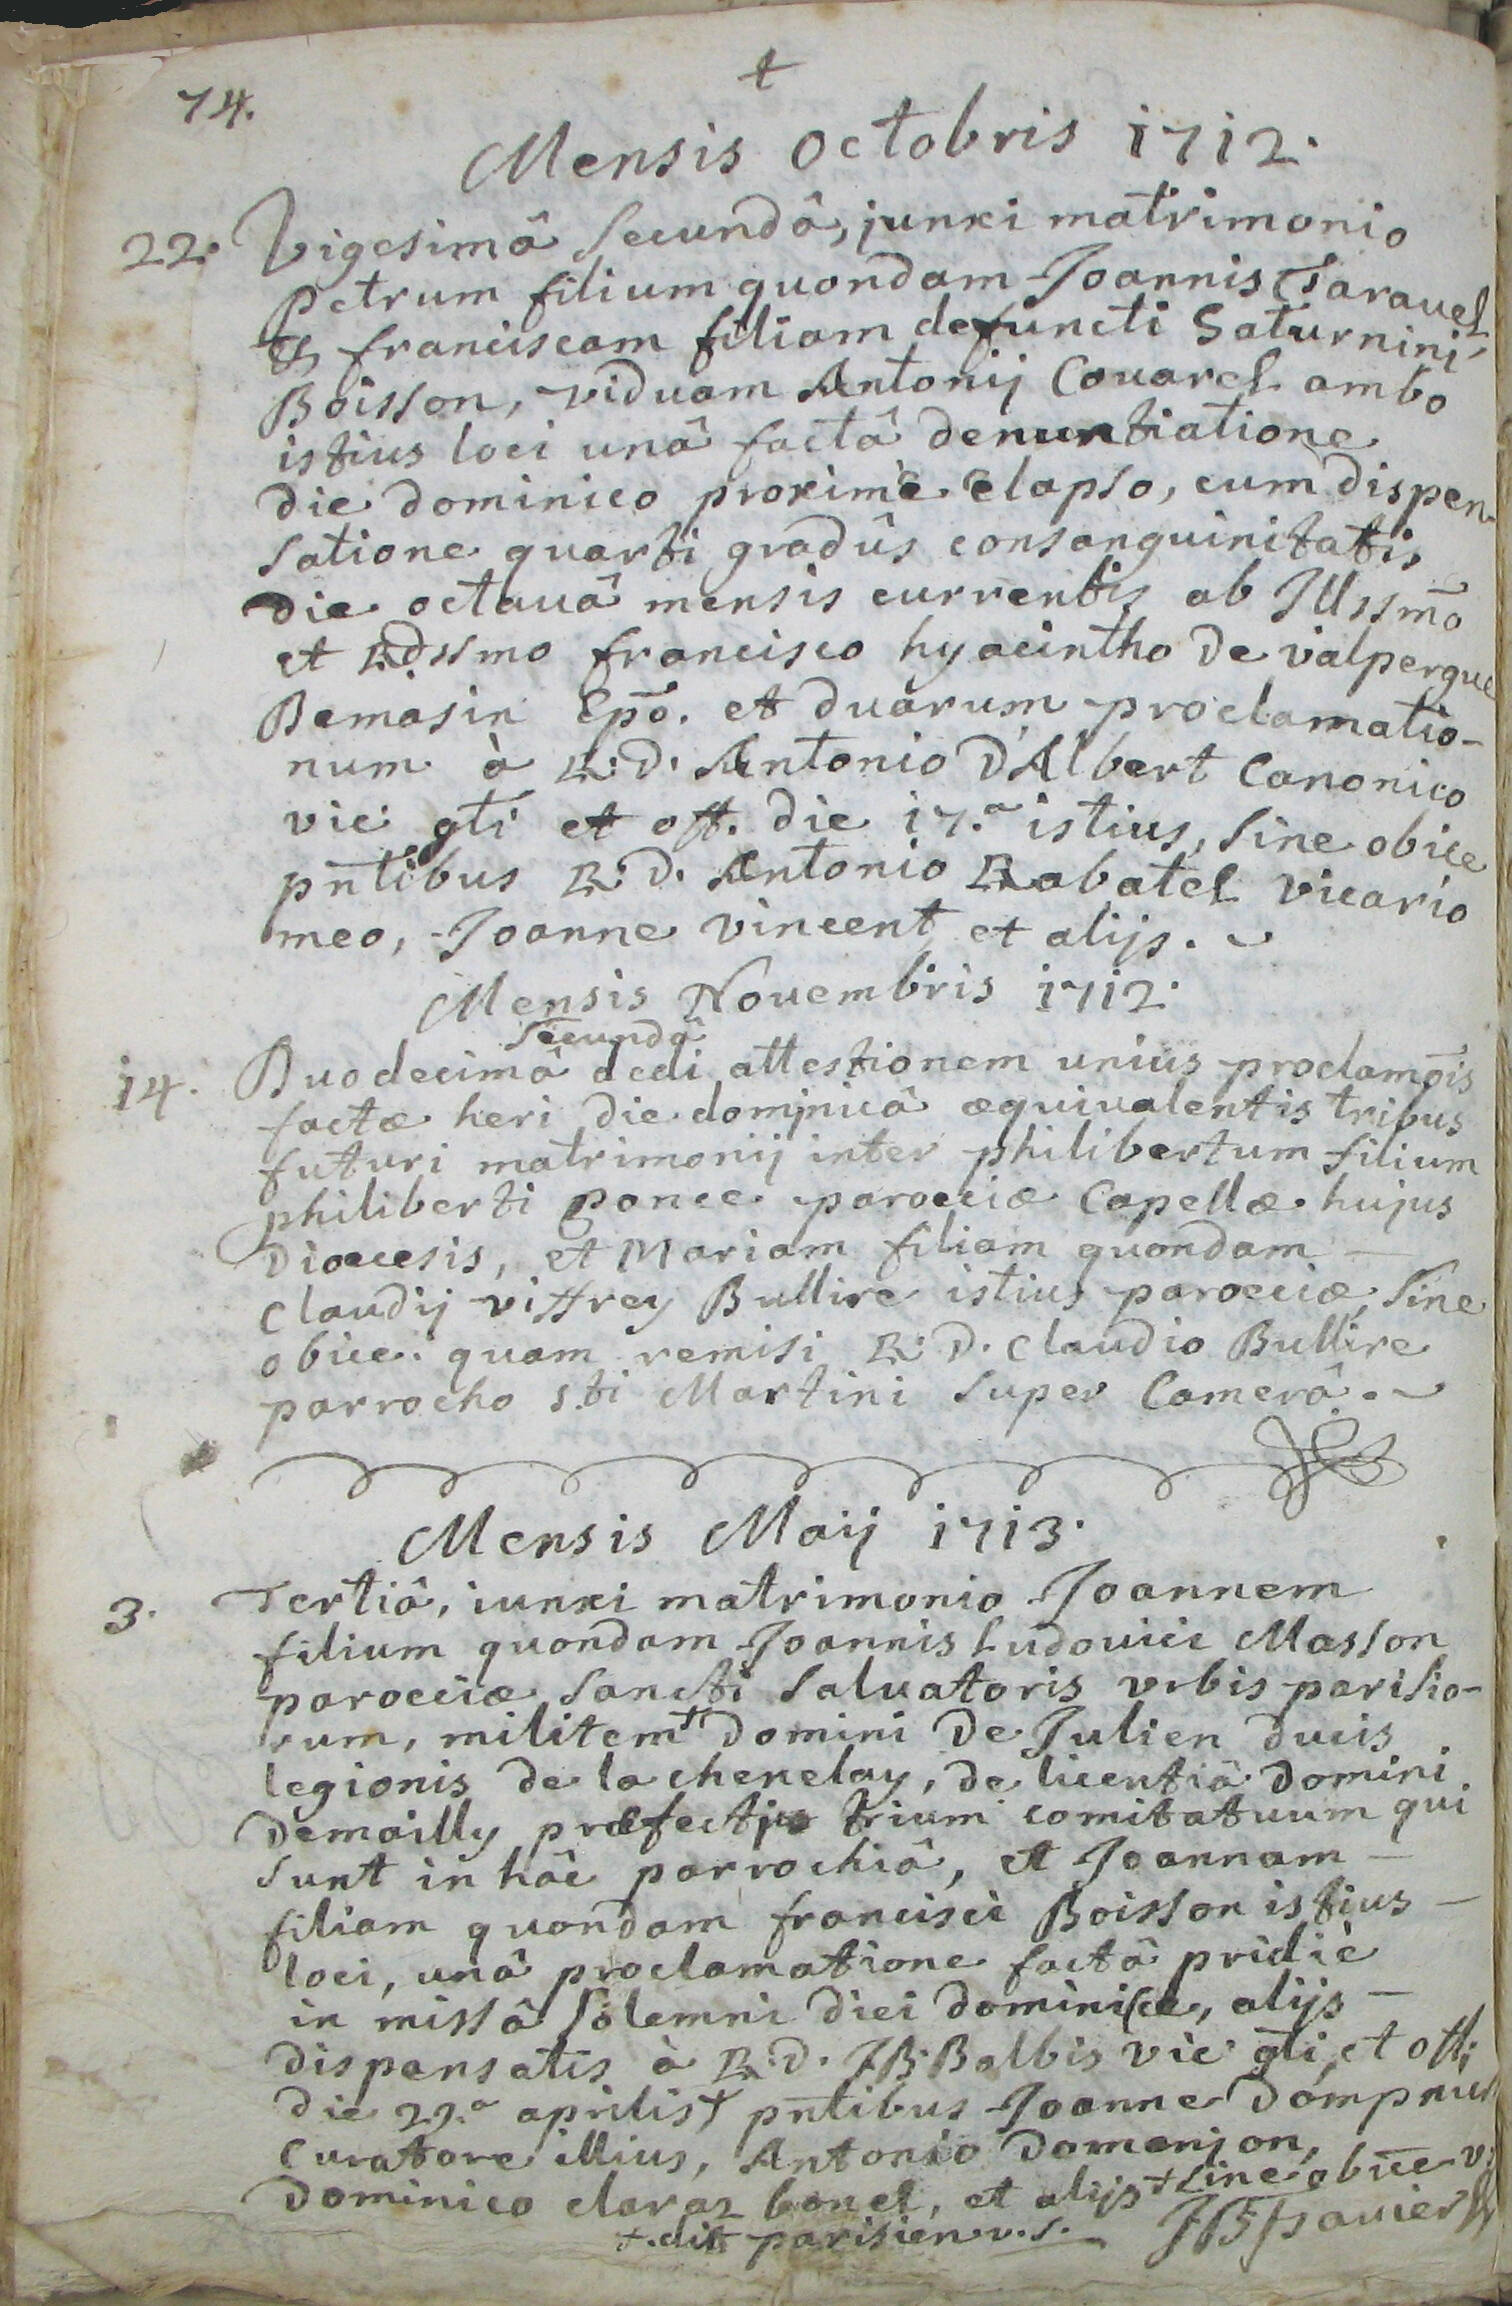 74.
+
Mensis Octobris 1712.
22. Vigesimâ secundâ, junxi matrimonio
petrum filium quondam Joannis Tarauel
& franciscam filiam defuncti Saturnini
Boisson, viduam Antonij Couarel ambo
istius loci unâ factâ denuntiatione
die dominico proximè elapso, cum dispen-
satione quarti gradûs consanguinitatis
die octauâ mensis currentis ab Illssmo
et Rdssmo francisco hyacintho de valpergue
Demasin Epō. et duarum proclamatio-
num à R: D. Antonio D'Albert Canonico
vic gti et off. die 17.a istius, sine obice
pntibus R: D. Antonio Rabatel vicario
meo, Joanne vincent et alijs.
Mensis Nouembris 1712.
secundâ
14. Duodecimâ dedi attestionem unius proclamois
factæ heri die dominicâ æquiualentis tribus
futuri matrimonij inter philibertum filium
philiberti ponce parocciæ Capellæ hujus
Diœcesis, et Mariam filiam quondam
Claudij viffrey Bullire istius parocciæ, sine
obice. quam remisi R: D. Claudio Bullire
parrocho s.ti Martini super Camerâ.
Mensis Maij 1713.
3. Tertiâ, iunxi matrimonio Joannem
filium quondam Joannis Ludouici Masson
parocciæ sancti saluatoris vrbis parisio-
rum, militem + domini De Julien ducis
legionis de la chenelay, de licentiâ domini
Demailly præfecti trium comitatuum qui
sunt in hâc parrochiâ, et Joannam
filiam quondam francisci Boisson istius
loci, unâ proclamatione factâ pridiè
in missâ solemni diei dominicæ, alijs
dispensatis à R: D. JB: Balbis vic gti et offi
die 29.a aprilis + pntibus Joanne Dompnier
Curatore illius, Antonio Domenjon,
Dominico claraz bonel, et alijs + sine obice v.
+. dit parisien v. s.